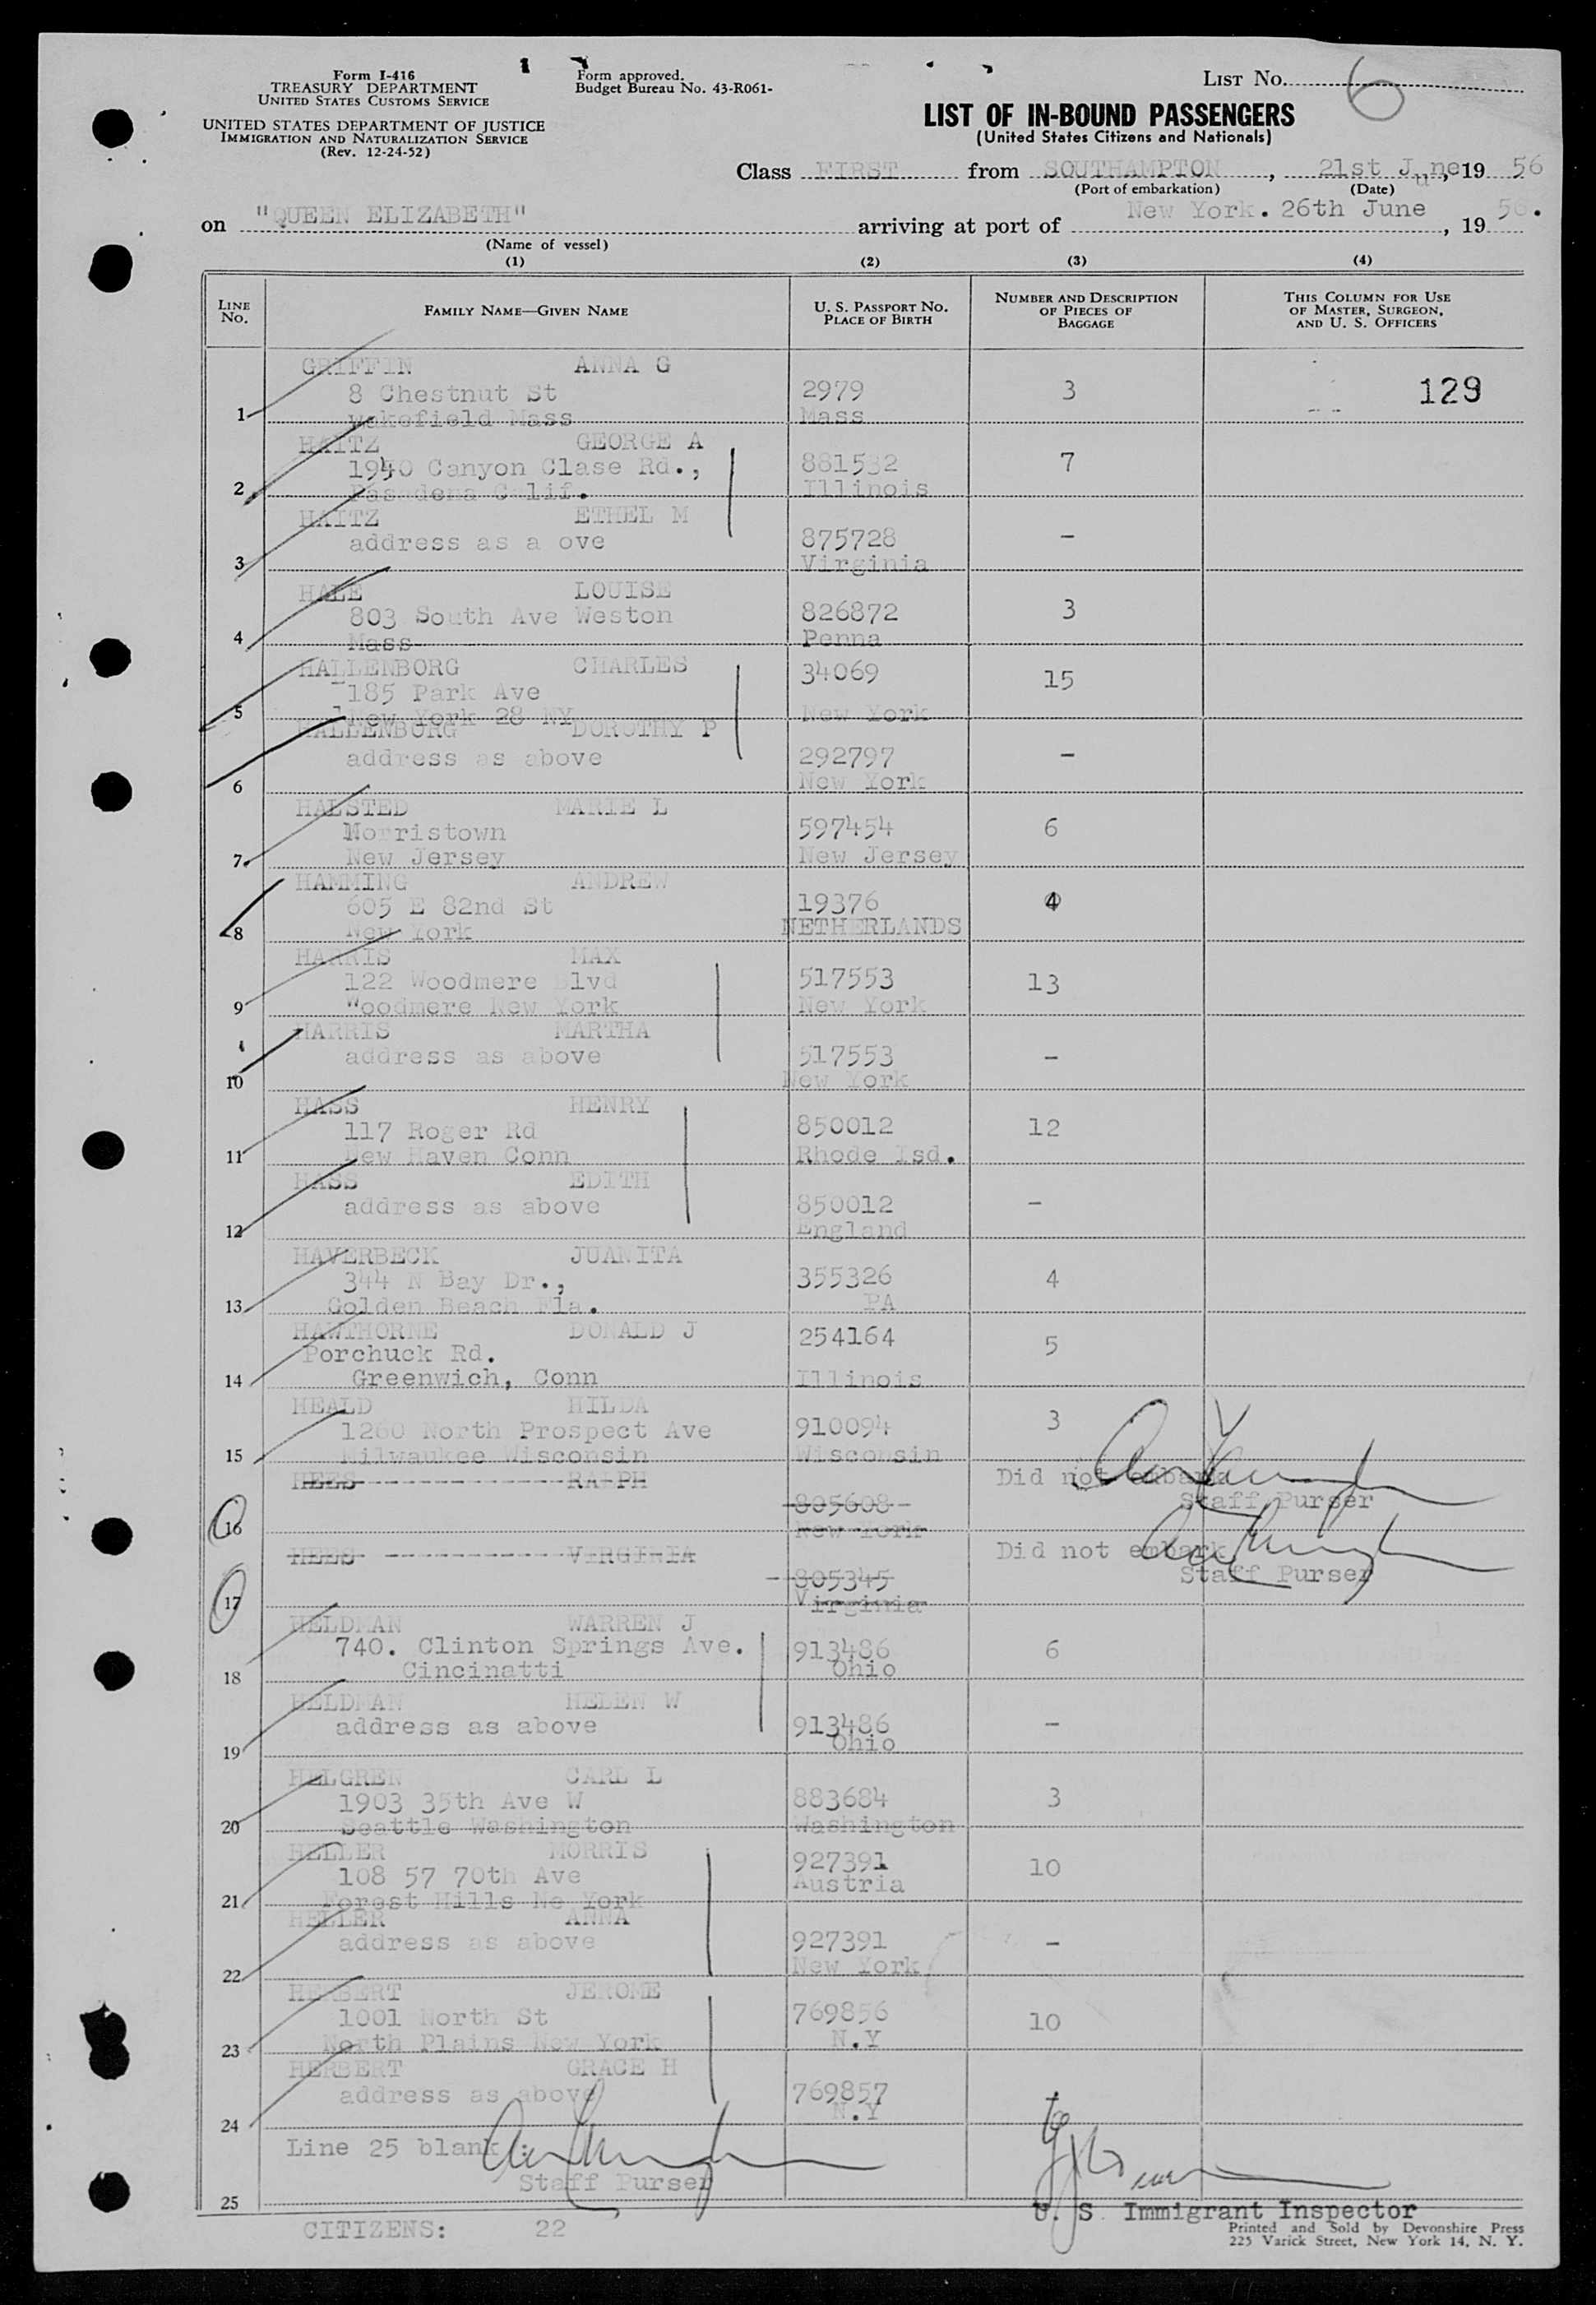 Form I-416
TREASURY DEPARTMENT
UNITED STATES CUSTOMS SERVICE
UNITED STATES DEPARTMENT OF JUSTICE
IMMIGRATION AND NATURALIZATION SERVICE
(Rev. 12-24-52)
Form approved.
Budget Bureau No. 43-R061-
LIST No. 6
LIST OF IN-BOUND PASSENGERS
(United States Citizens and Nationals)
Class FIRST from SOUTHAMPTON, 21st June, 19 56
(Port of embarkation) (Date)
on "QUEEN ELIZABETH" arriving at port of New York. 26th June, 19 56.
(Name of vessel)
(1) (2) (3) (4)
LINE No. FAMILY NAME—GIVEN NAME U. S. PASSPORT No. PLACE OF BIRTH NUMBER AND DESCRIPTION OF PIECES OF BAGGAGE THIS COLUMN FOR USE OF MASTER, SURGEON, AND U. S. OFFICERS
GRIFFIN ANNA G
8 Chestnut St 2979 3 129
1 Wakefield Mass Mass
HAITZ GEORGE A
1940 Canyon Clase Rd., 881532 7
2 Pasadena Calif. Illinois
HAITZ ETHEL M
address as a ove 875728 -
3 Virginia
HALE LOUISE
803 South Ave Weston 826872 3
4 Mass Penna
HALLENBORG CHARLES 34069 15
1185 Park Ave
5 New York 28 NY New York
HALLENBORG DOROTHY P
address as above 292797 -
6 New York
HALSTED MARIE L
Morristown 597454 6
7 New Jersey New Jersey
HAMMING ANDREW
605 E 82nd St 19376 4
8 New York NETHERLANDS
HARRIS MAX
122 Woodmere Blvd 517553 13
9 Woodmere New York New York
HARRIS MARTHA
address as above 517553 -
10 New York
HASS HENRY
117 Roger Rd 850012 12
11 New Haven Conn Rhode Isd.
HASS EDITH
address as above 850012 -
12 England
HAVERBECK JUANITA
344 N Bay Dr., 355326 4
13 Golden Beach Fla. PA
HAWTHORNE DONALD J 254164 5
Porchuck Rd.
14 Greenwich, Conn Illinois
HEALD HILDA
1260 North Prospect Ave 910094 3
15 Milwaukee Wisconsin Wisconsin
HEES RALPH Did not embark
805608 Staff Purser
16 New York
HEES VIRGINIA Did not embark
805345 Staff Purser
17 Virginia
HELDMAN WARREN J
740. Clinton Springs Ave. 913486 6
18 Cincinatti Ohio
HELDMAN HELEN W
address as above 913486 -
19 Ohio
HELGREN CARL L
1903 35th Ave W 883684 3
20 Seattle Washington Washington
HELLER MORRIS 927391 10
108 57 70th Ave Austria
21 Forest Hills Ne York
HELLER ANNA
address as above 927391 -
22 New York
HERBERT JEROME
1001 North St 769856 10
23 North Plains New York N.Y
HERBERT GRACE H
address as above 769857 -
24 N.Y
Line 25 blank:
Staff Purser
25
U. S. Immigrant Inspector
CITIZENS: 22
Printed and Sold by Devonshire Press
225 Varick Street, New York 14, N. Y.